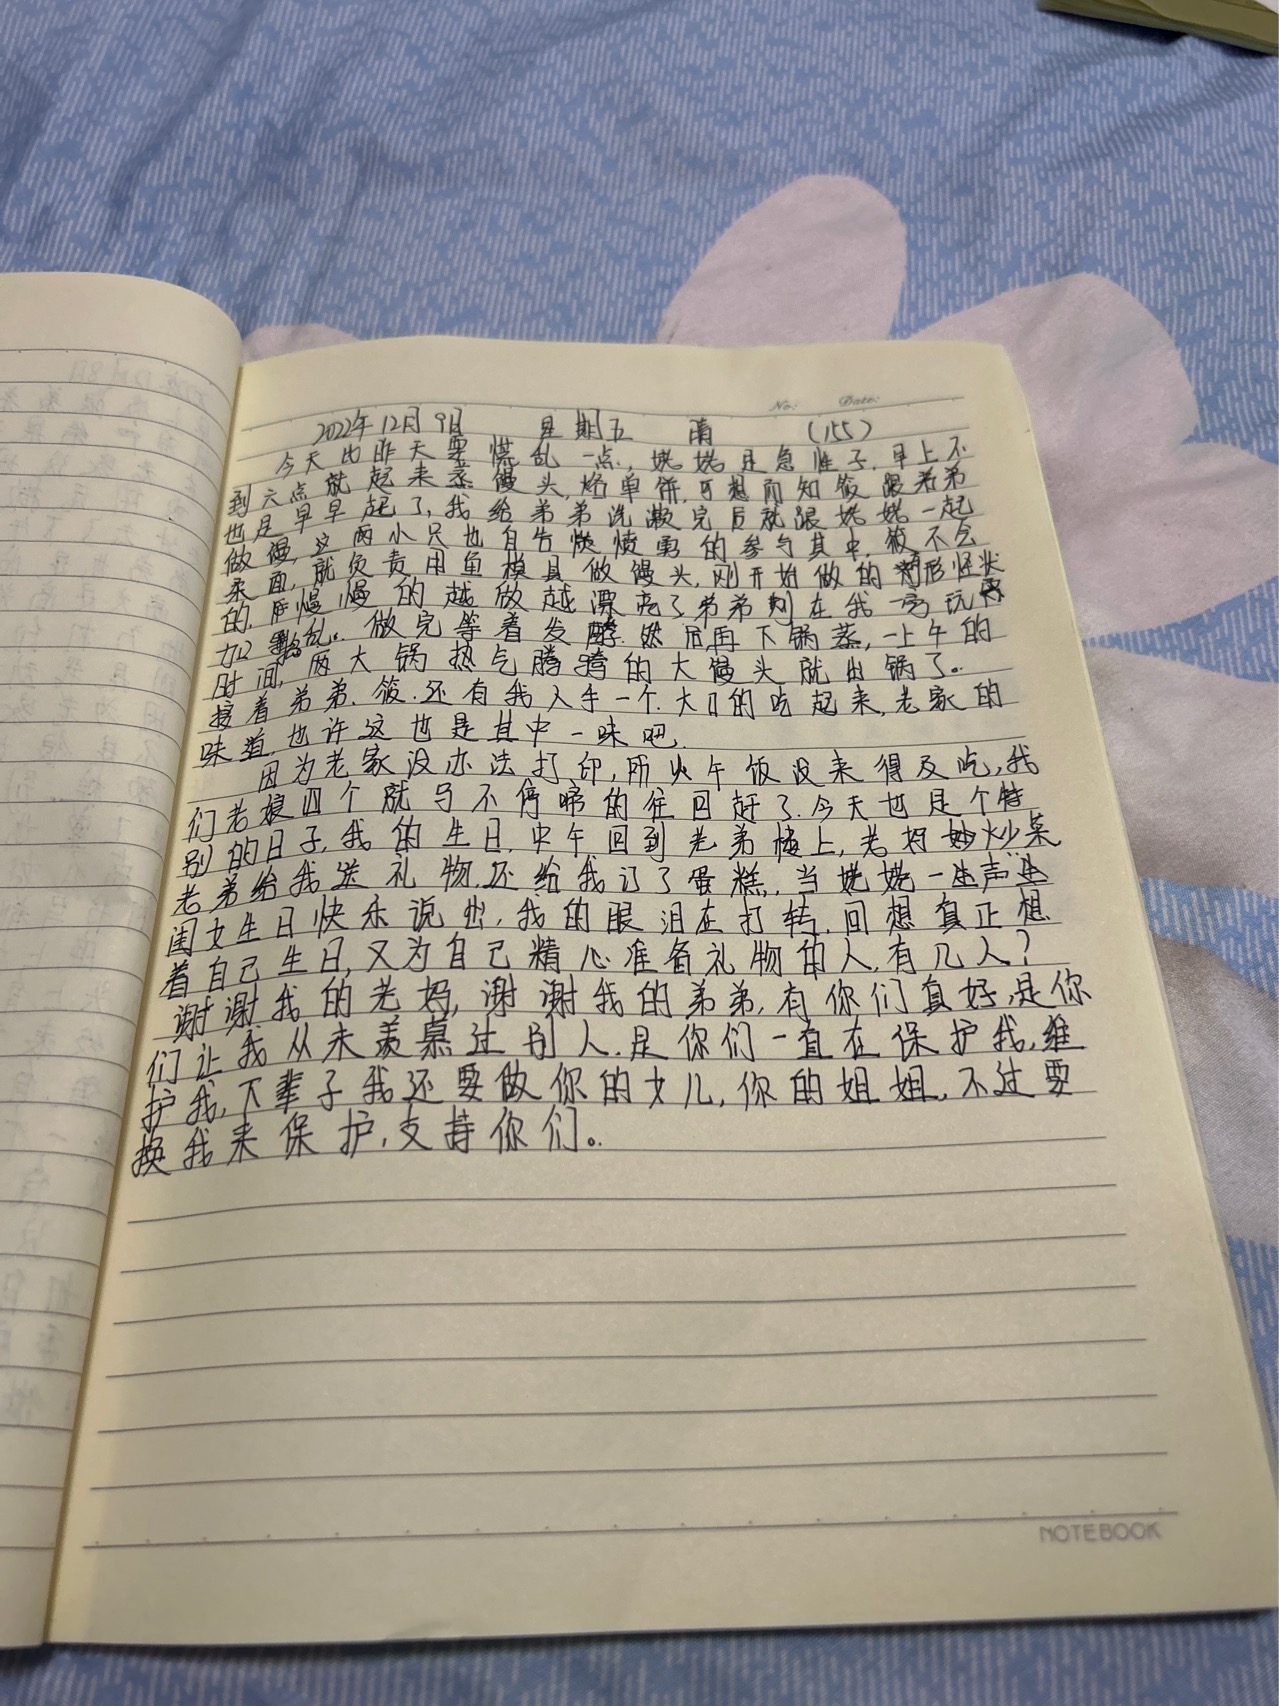 No: Date:
2022年12月9日 星期五 晴 (155)
今天比昨天要慌乱一点，姥姥是急性子，早上不
到六点就起来蒸馒头，烙单饼，可想而知筱跟着弟
也是早早起了，我给弟弟洗漱完后就跟姥姥一起
做馍，这两小只也自告愤勇的参与其中，筱不会
柔面，就负责用鱼模具做馒头，刚开始做的形怪状
的，后慢慢的越做越漂亮了弟弟则在我一旁玩
加乱。做完等着发酵，然后再下锅蒸，一上午的
时间，两大锅热气腾腾的大馒头就出锅了。
接着弟弟、筱、还有我人手一个大口的吃起来，老家的
味道，也许这也是其中一味吧
因为老家没办法打印，所以午饭没来得及吃，我
们老娘四个就马不停啼的往回赶了，今天也是个特
别的日子，我的生日，中午回到老弟楼上，老妈炒菜
老弟给我送礼物，还给我订了蛋糕，当姥姥一声
闺女生日快乐说出，我的眼泪在打转，回想真正想
着自己生日，又为自己精心准备礼物的人，有几人？
谢谢我的老妈，谢谢我的弟弟，有你们真好，是你
们让我从未羡慕过别人，是你们一直在保护我，维
护我，下辈子我还要做你的女儿，你的姐姐，不过要
换我来保护，支持你们。
NOTEBOOK